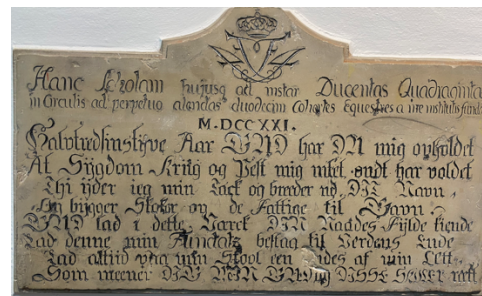 Hanc Scholam hujusq ad instar Ducentas Quadraginta
in Circulis ad perpetuo alendas duodecim Cohortes Equestres a me institutis fund
M.DCCXXI.
Halvtredsinstyve Aar GUD har DU mig opholdet
At Sygdom Kriig og Pest mig intet ondt har voldet
Thi yder ieg min Tack og breeder ud DIT Navn,
Og bygger Skoler op de Fattige til Gavn.
GUD lad i dette Værck DIN Naades Fylde kiende
Lad denne min Fundatz bestaa til Verdens Ende
Lad altiid paa min Stool een findes af min Ætt,
Som meener DIG MIN GUD og DISSE SKOLER rætt